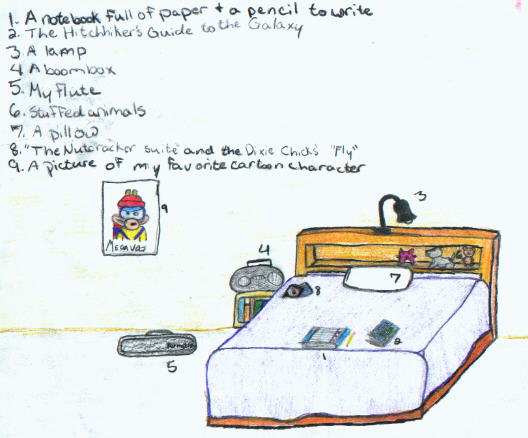 1. A notebook full of paper + a pencil to write
2. The Hitchhiker's Guide to the Galaxy
3. A lamp
4 A boombox
5. My flute
6. Stuffed animals
7. A pillow
8. "The Nutcracker Suite" and the Dixie Chicks' "Fly"
9. A picture of my favorite cartoon character
3
9
4
7
8
MegaVoz
1
2
5